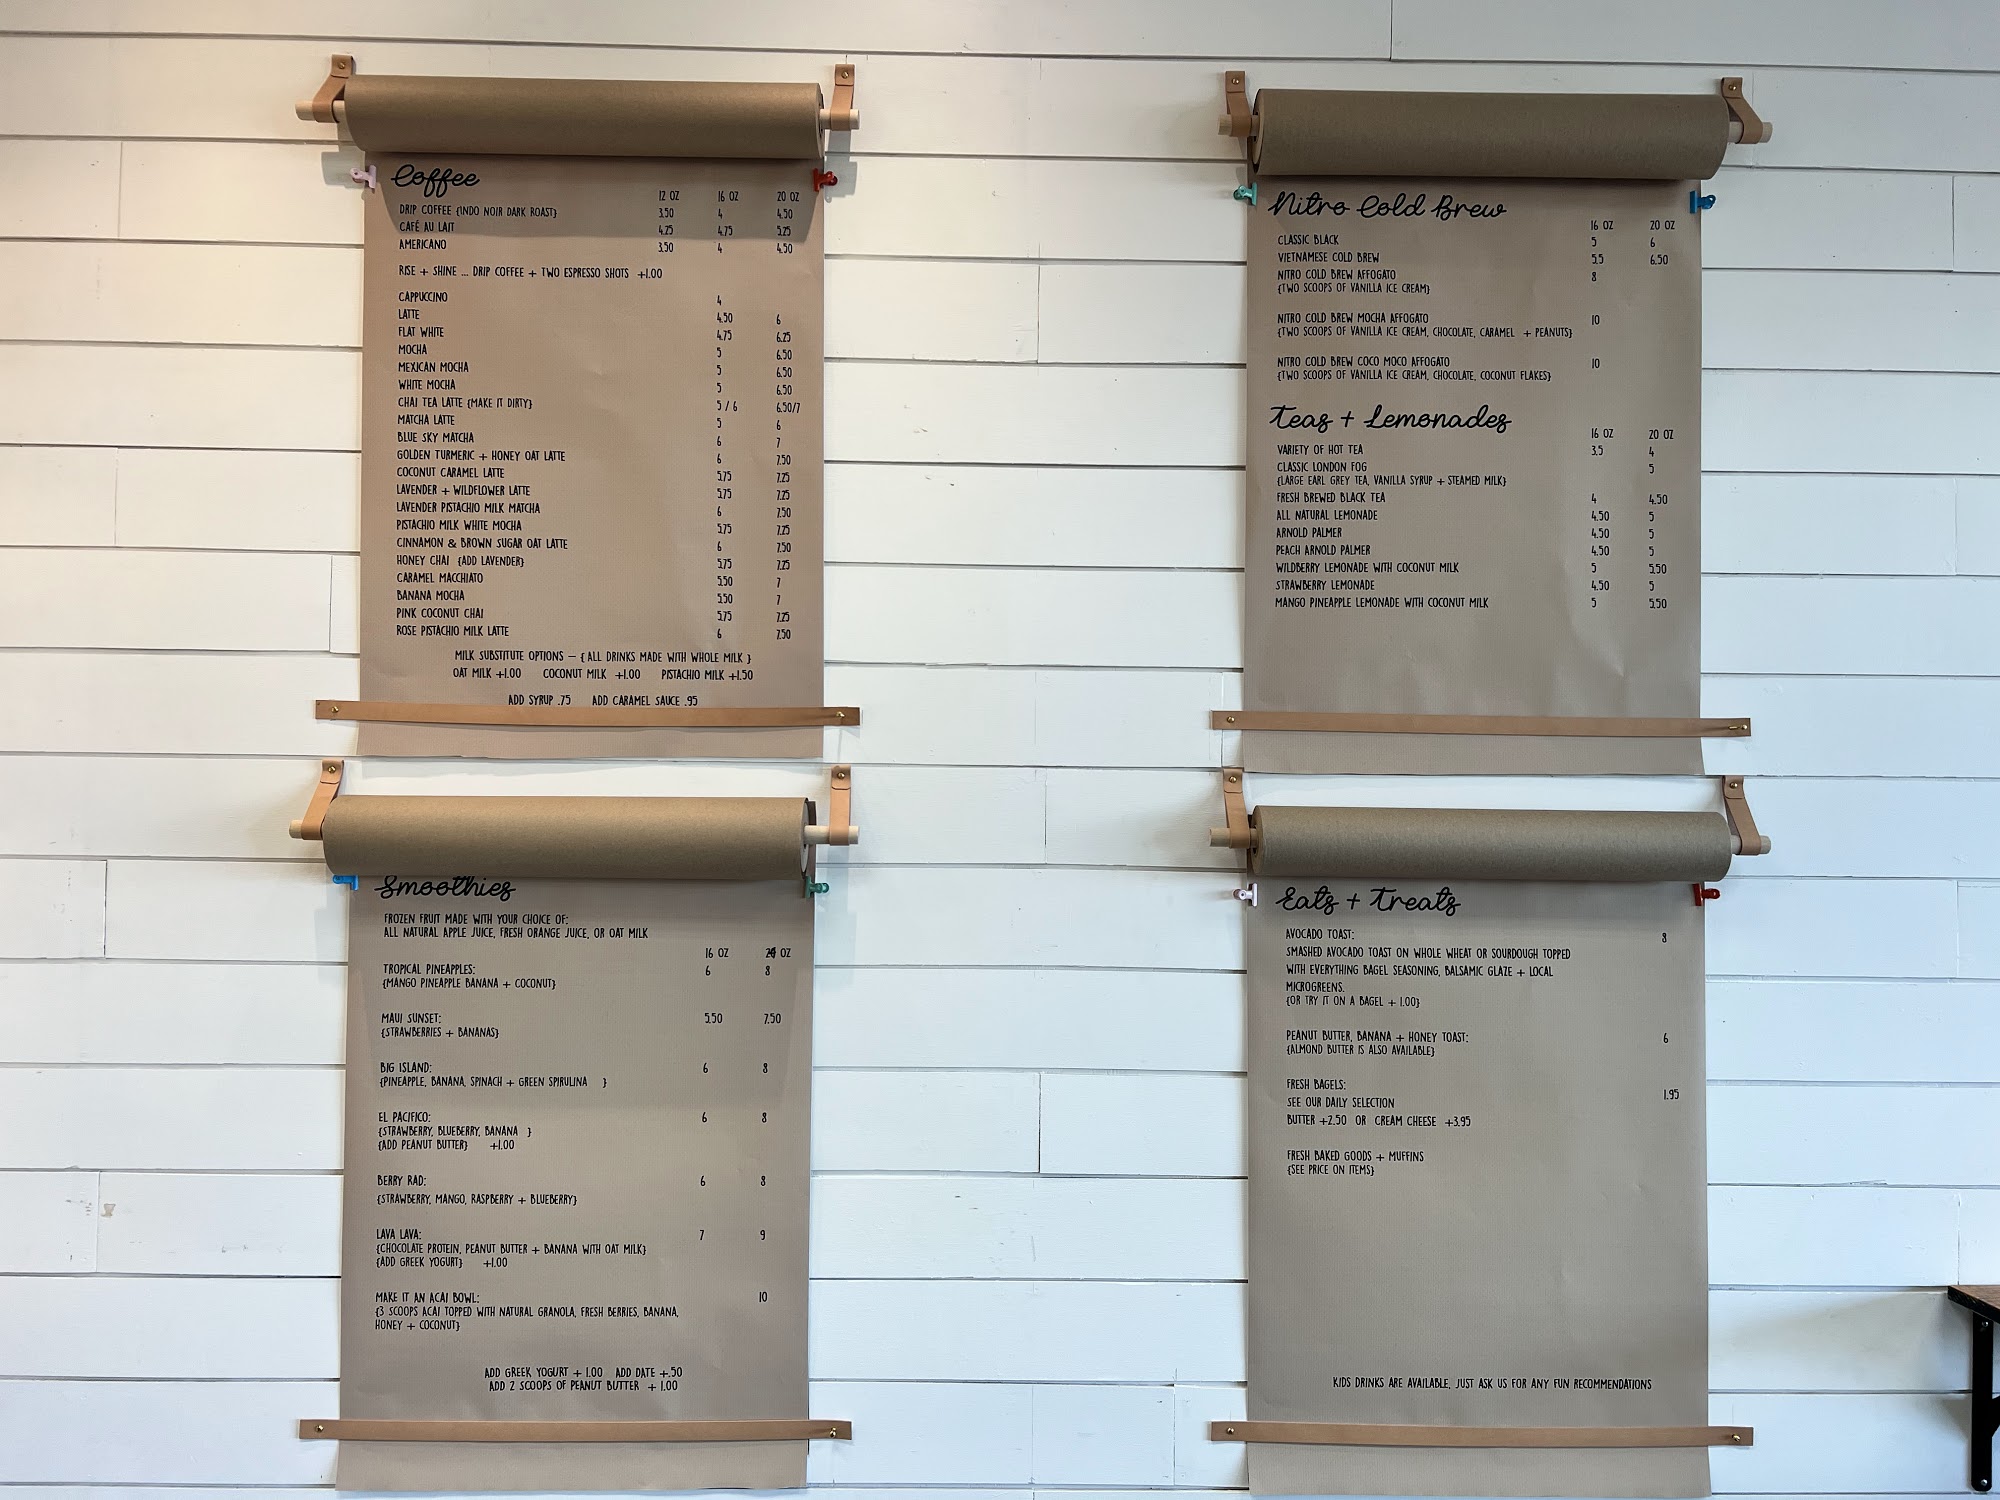 Coffee
12 OZ 16 OZ 20 OZ
DRIP COFFEE {INDO NOIR DARK ROAST} 3.50 4 4.50
CAFÉ AU LAIT 4.25 4.75 5.25
AMERICANO 3.50 4 4.50
RISE + SHINE ... DRIP COFFEE + TWO ESPRESSO SHOTS +1.00
CAPPUCCINO 4
LATTE 4.50 6
FLAT WHITE 4.75 6.25
MOCHA 5 6.50
MEXICAN MOCHA 5 6.50
WHITE MOCHA 5 6.50
CHAI TEA LATTE {MAKE IT DIRTY} 5 / 6 6.50/7
MATCHA LATTE 5 6
BLUE SKY MATCHA 6 7
GOLDEN TURMERIC + HONEY OAT LATTE 6 7.50
COCONUT CARAMEL LATTE 5.75 7.25
LAVENDER + WILDFLOWER LATTE 5.75 7.25
LAVENDER PISTACHIO MILK MATCHA 6 7.50
PISTACHIO MILK WHITE MOCHA 5.75 7.25
CINNAMON & BROWN SUGAR OAT LATTE 6 7.50
HONEY CHAI {ADD LAVENDER} 5.75 7.25
CARAMEL MACCHIATO 5.50 7
BANANA MOCHA 5.50 7
PINK COCONUT CHAI 5.75 7.25
ROSE PISTACHIO MILK LATTE 6 7.50
MILK SUBSTITUTE OPTIONS – { ALL DRINKS MADE WITH WHOLE MILK }
OAT MILK +1.00 COCONUT MILK +1.00 PISTACHIO MILK +1.50
ADD SYRUP .75 ADD CARAMEL SAUCE .95
Nitro Cold Brew
16 OZ 20 OZ
CLASSIC BLACK 5 6
VIETNAMESE COLD BREW 5.5 6.50
NITRO COLD BREW AFFOGATO 8
{TWO SCOOPS OF VANILLA ICE CREAM}
NITRO COLD BREW MOCHA AFFOGATO 10
{TWO SCOOPS OF VANILLA ICE CREAM, CHOCOLATE, CARAMEL + PEANUTS}
NITRO COLD BREW COCO MOCO AFFOGATO 10
{TWO SCOOPS OF VANILLA ICE CREAM, CHOCOLATE, COCONUT FLAKES}
Teas + Lemonades
16 OZ 20 OZ
VARIETY OF HOT TEA 3.5 4
CLASSIC LONDON FOG 5
{LARGE EARL GREY TEA, VANILLA SYRUP + STEAMED MILK}
FRESH BREWED BLACK TEA 4 4.50
ALL NATURAL LEMONADE 4.50 5
ARNOLD PALMER 4.50 5
PEACH ARNOLD PALMER 4.50 5
WILDBERRY LEMONADE WITH COCONUT MILK 5 5.50
STRAWBERRY LEMONADE 4.50 5
MANGO PINEAPPLE LEMONADE WITH COCONUT MILK 5 5.50
Smoothies
FROZEN FRUIT MADE WITH YOUR CHOICE OF:
ALL NATURAL APPLE JUICE, FRESH ORANGE JUICE, OR OAT MILK
16 OZ OZ
TROPICAL PINEAPPLES: 6 8
{MANGO PINEAPPLE BANANA + COCONUT}
MAUI SUNSET: 5.50 7.50
{STRAWBERRIES + BANANAS}
BIG ISLAND: 6 8
{PINEAPPLE, BANANA, SPINACH + GREEN SPIRULINA }
EL PACIFICO: 6 8
{STRAWBERRY, BLUEBERRY, BANANA }
{ADD PEANUT BUTTER} +1.00
BERRY RAD: 6 8
{STRAWBERRY, MANGO, RASPBERRY + BLUEBERRY}
LAVA LAVA: 7 9
{CHOCOLATE PROTEIN, PEANUT BUTTER + BANANA WITH OAT MILK}
{ADD GREEK YOGURT} +1.00
MAKE IT AN ACAI BOWL: 10
{3 SCOOPS ACAI TOPPED WITH NATURAL GRANOLA, FRESH BERRIES, BANANA,
HONEY + COCONUT}
ADD GREEK YOGURT + 1.00 ADD DATE +.50
ADD 2 SCOOPS OF PEANUT BUTTER + 1.00
Eats + Treats
AVOCADO TOAST: 8
SMASHED AVOCADO TOAST ON WHOLE WHEAT OR SOURDOUGH TOPPED
WITH EVERYTHING BAGEL SEASONING, BALSAMIC GLAZE + LOCAL
MICROGREENS.
{OR TRY IT ON A BAGEL + 1.00}
PEANUT BUTTER, BANANA + HONEY TOAST: 6
{ALMOND BUTTER IS ALSO AVAILABLE}
FRESH BAGELS: 1.95
SEE OUR DAILY SELECTION
BUTTER +2.50 OR CREAM CHEESE +3.95
FRESH BAKED GOODS + MUFFINS
{SEE PRICE ON ITEMS}
KIDS DRINKS ARE AVAILABLE, JUST ASK US FOR ANY FUN RECOMMENDATIONS